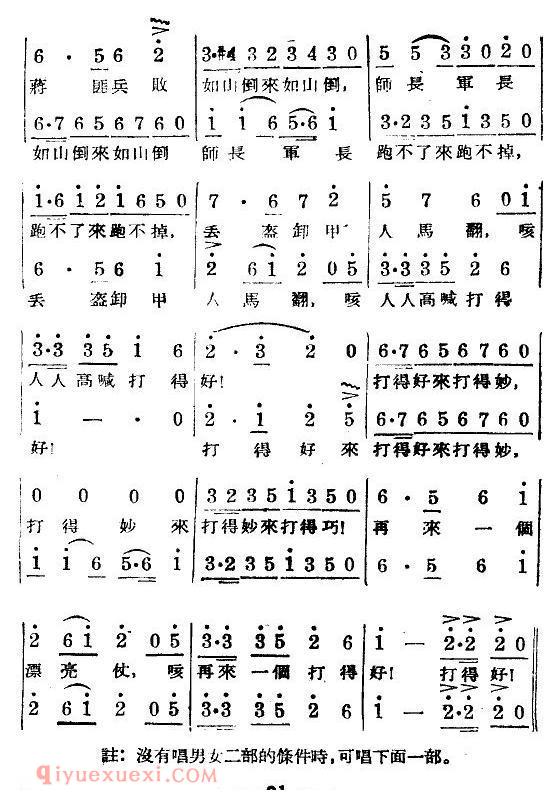 6 · 5 6 2 | 3·#4 3 2 3 4 3 0 | 5 5 3 3 0 2 0
蔣 匪兵敗 如山倒來如山倒, 師長 軍長
6·7 6 5 6 7 6 0 | 1 1 6 5·6 1 | 3·2 3 5 1 3 5 0
如山倒來如山倒 師長 軍長 跑不了來跑不掉,
1·6 1 2 1 6 5 0 | 7 · 6 7 2 | 5 7 6 0 1
跑不了來跑不掉, 丢 盔卸甲 人馬翻,咳
6 · 5 6 1 | 2 6 1 2 0 5 | 3·3 3 5 2 6
丢 盔卸甲 人馬翻,咳 人人高喊打得
3·3 3 5 1 6 | 2 · 3 2 0 | 6·7 6 5 6 7 6 0
人人高喊打得 好! 打得好來打得妙,
1 — · 0 | 2 · 1 2 5 | 6·7 6 5 6 7 6 0
好! 打得好來 打得好來打得妙,
0 0 0 0 | 3 2 3 5 1 3 5 0 | 6 · 5 6 1
打得妙來 打得妙來打得巧! 再來一個
1 1 6 5·6 1 | 3·2 3 5 1 3 5 0 | 6 · 5 6 1
2 6 1 2 0 5 | 3·3 3 5 2 6 | 1 — 2·2 2 0
漂亮仗,咳 再來一個打得 好! 打得好!
2 6 1 2 0 5 | 3·3 3 5 2 6 | 1 — 2·2 2 0
註: 沒有唱男女二部的條件時,可唱下面一部。
qiyuexuexi.com